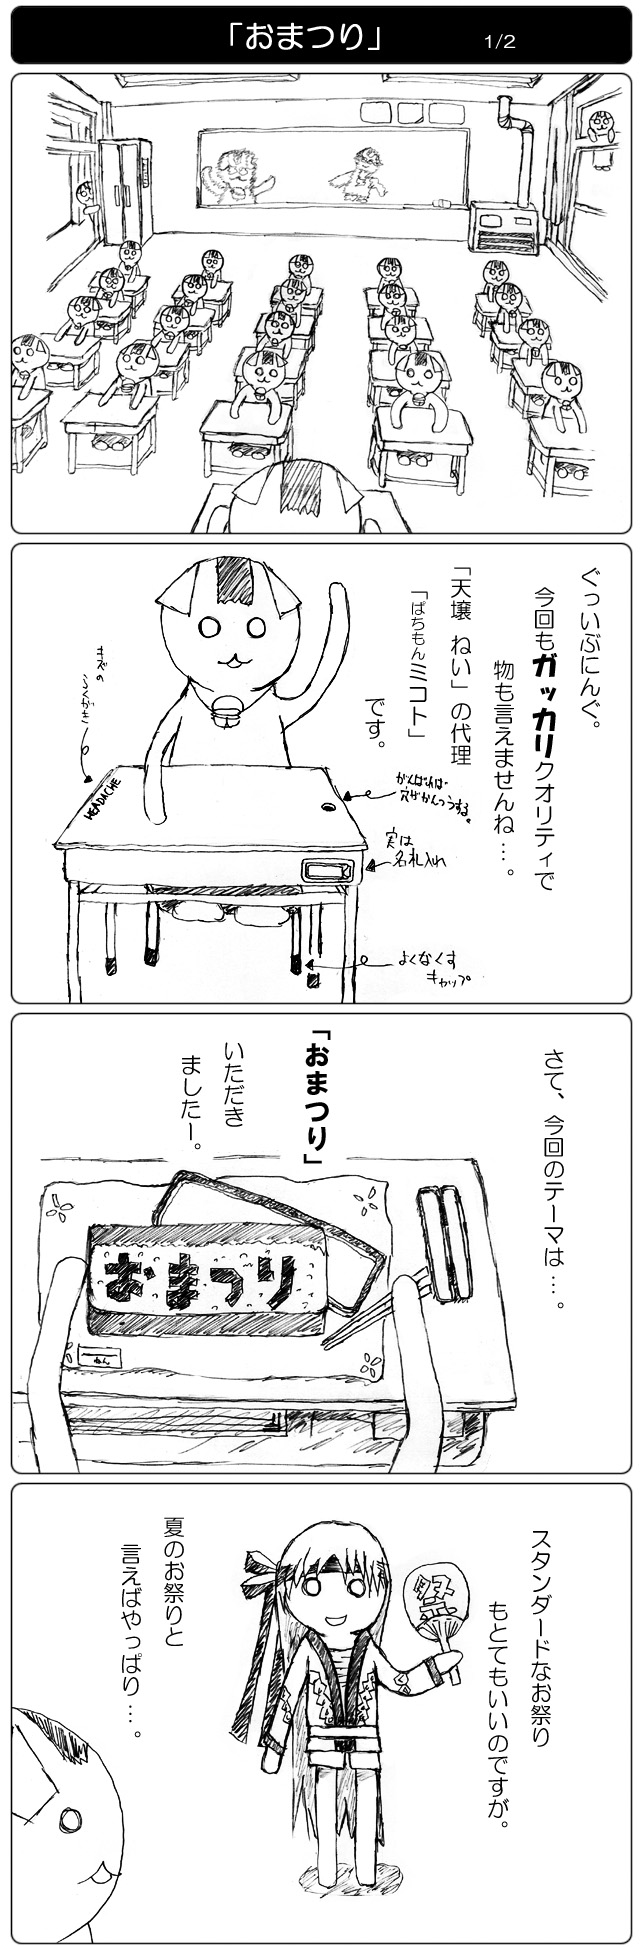 「おまつり」
1/2
ぐっいぶにんぐ。
今回もガッカリクオリティで
物も言えませんね…。
「天壌 ねい」の代理
「ぱちもんミコト」
です。
キズの
らくがき
HEADACHE
がんばれば
穴がかんつうする。
実は
名札入れ
よくなくす
キャップ
さて、今回のテーマは…。
「おまつり」
いただき
ましたー。
おまつり
スタンダードなお祭り
もとてもいいのですが。
祭
夏のお祭りと
言えばやっぱり…。